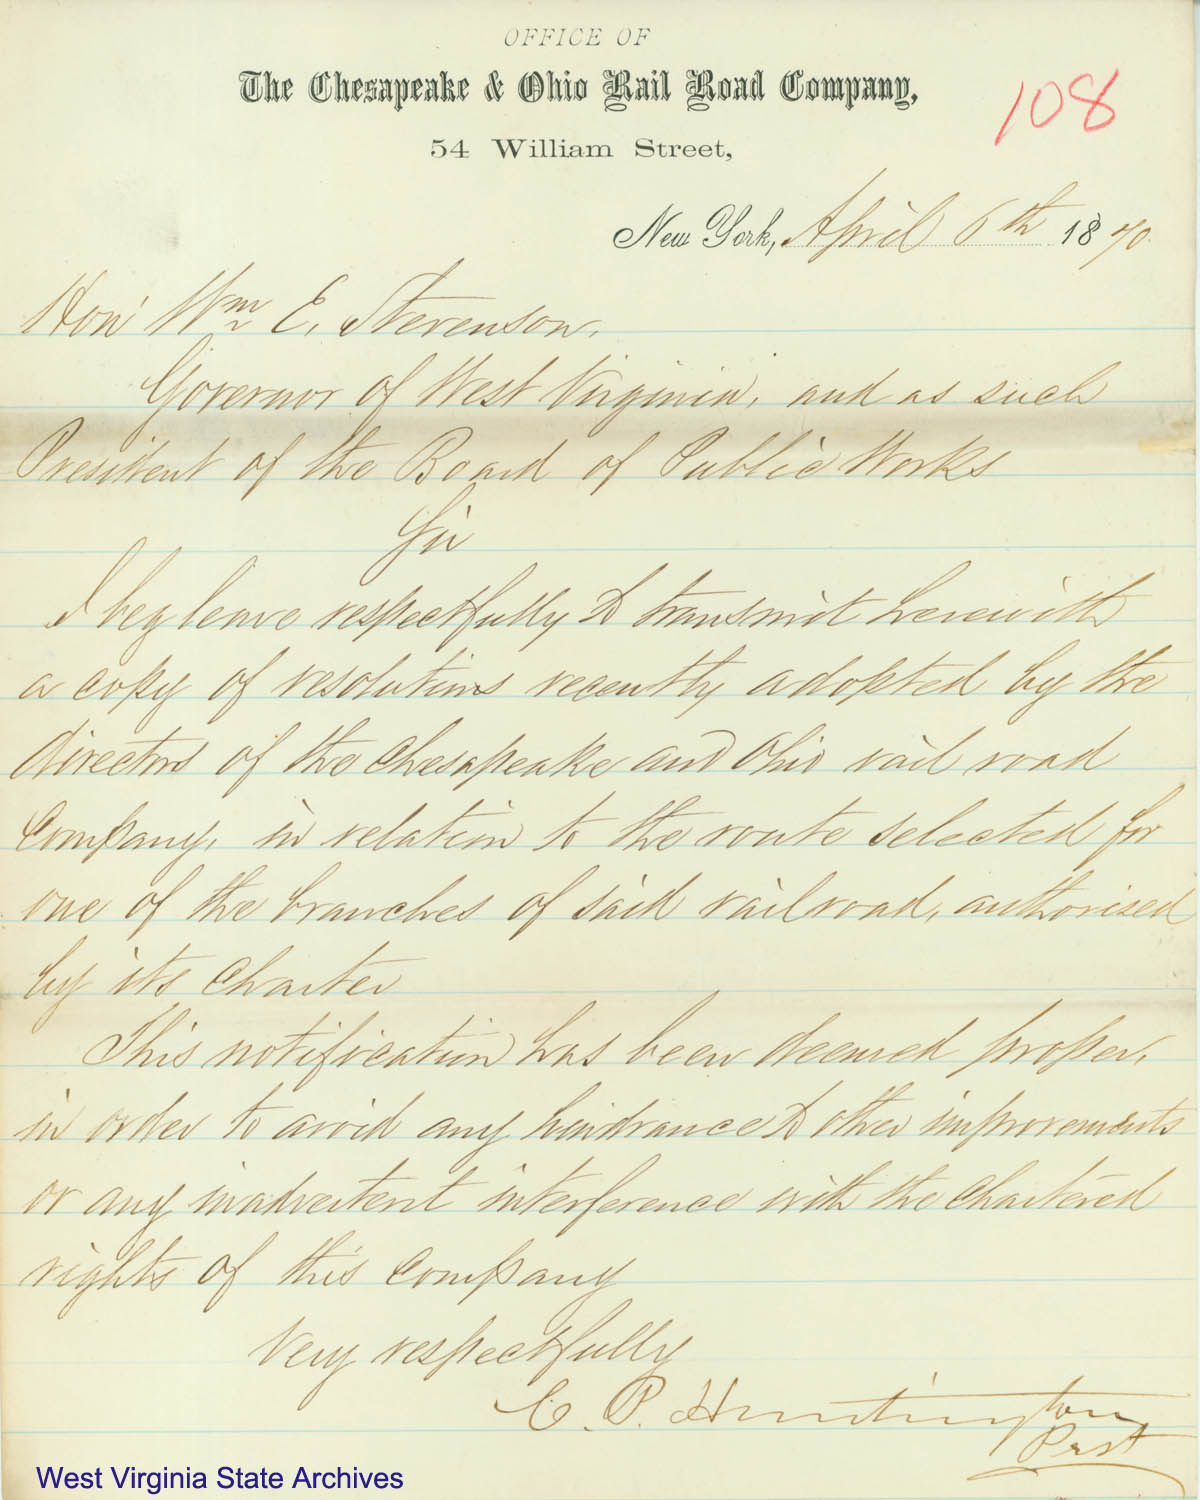 OFFICE OF
The Chesapeake & Ohio Rail Road Company,
108
54 William Street,
New York, April 6th 1870.
Hon' Wm E. Stevenson,
Governor of West Virginia, and as such
President of the Board of Public Works
Sir
I beg leave respectfully to transmit herewith
a copy of resolutions recently adopted by the
directors of the Chesapeake and Ohio rail road
Company, in relation to the route selected for
one of the branches of said railroad, authorised
by its Charter
This notification has been deemed proper,
in order to avoid any hindrance to other improvements
or any inadvertent interference with the chartered
rights of this Company
Very respectfully
C. P. Huntington
Prst
West Virginia State Archives